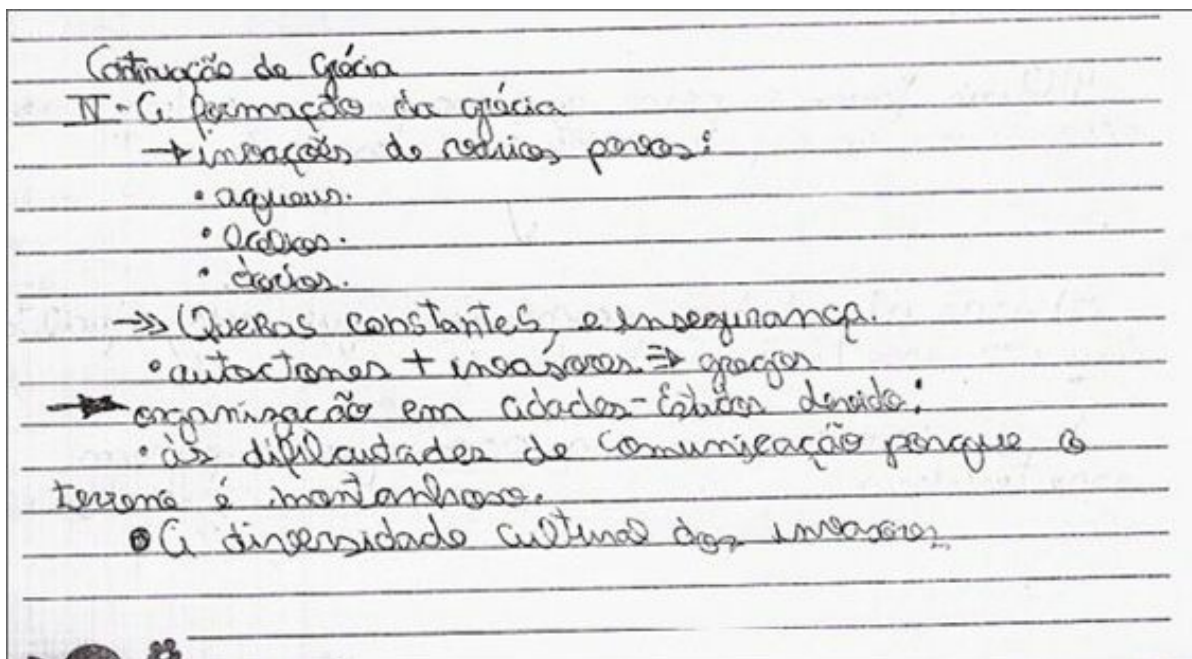 Continuação da Grécia
IV - A formação da grécia
→ invasões de vários povos:
• aqueus.
• eólios.
• dórios.
->> Querras constantes e insegurança.
• autoctones + invasores ⇒ gregos
→ organização em cidades-Estados devido:
• às difilcudades de comunicação porque o
terreno é montanhoso.
• A diversidade cultural dos invasores